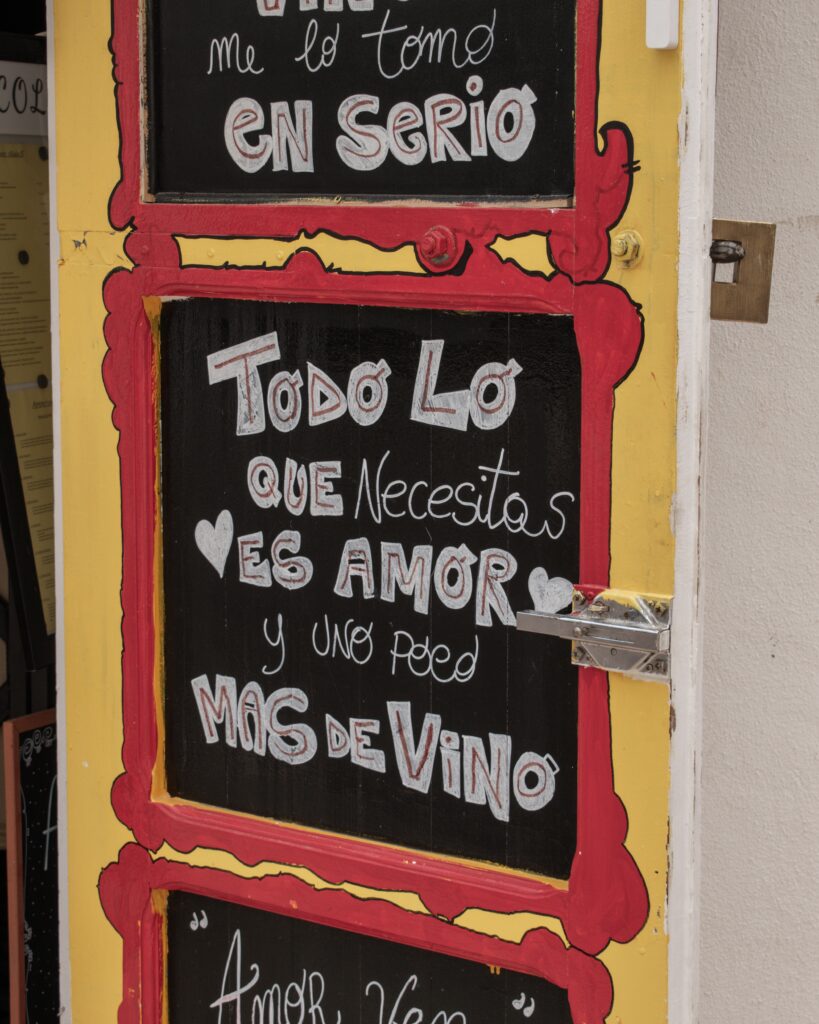 me lo tomo
EN SERIO
TODO LO
QUE Necesitas
ES AMOR
y UNO POCO
MAS DE VINO
" Amor Ven "